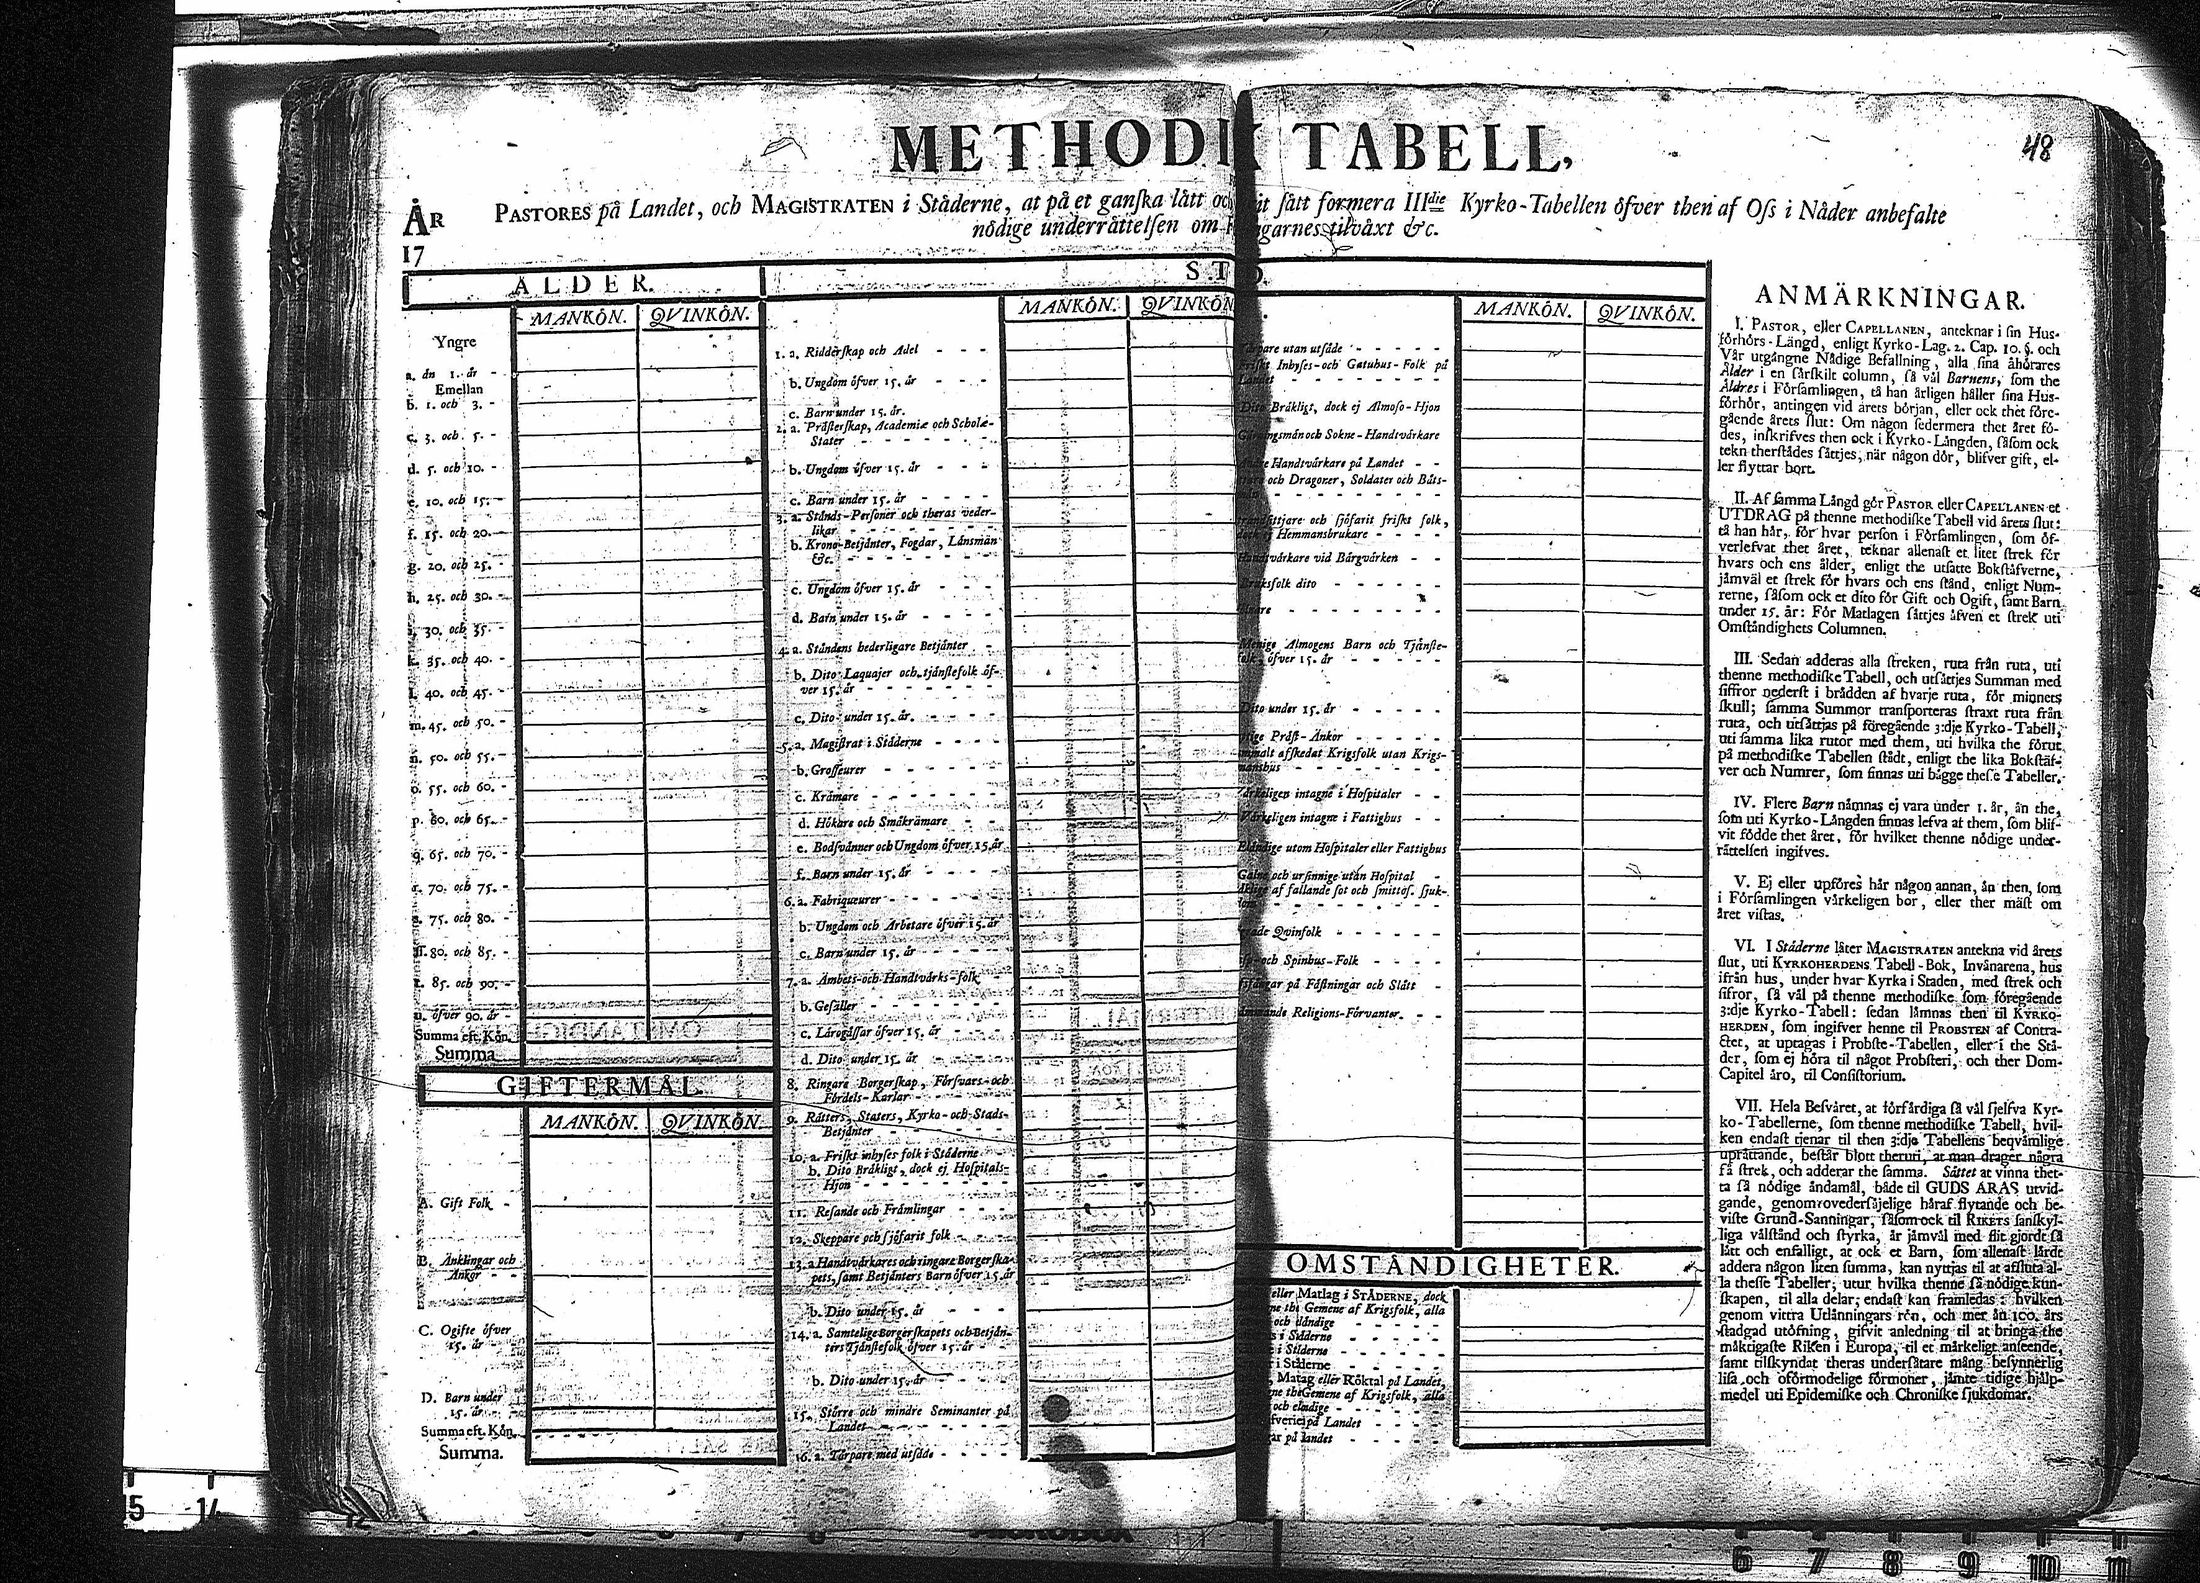 METHODI TABELL,
48
ÅR
17
PASTORES på Landet, och MAGISTRATEN i Ståderne, at på et ganſka lått och ſått formera IIIdie Kyrko-Tabellen ôfver then af Oſs i Nåder anbefalte
nôdige underråttelſen om garnes tilvåxt &c.
ÅLDER.
MANKÔN. QVINKÔN.
Yngre
a. ån 1. år -
Emellan
b. 1. och 3. -
c. 3. och 5. -
d. 5. och 10. -
e. 10. och 15. -
f. 15. och 20. -
g. 20. och 25. -
h. 25. och 30. -
i. 30. och 35. -
k. 35. och 40. -
l. 40. och 45. -
m. 45. och 50. -
n. 50. och 55. -
o. 55. och 60. -
p. 60. och 65. -
q. 65. och 70. -
r. 70. och 75. -
s. 75. och 80. -
ſf. 80. och 85. -
t. 85. och 90. -
u. ôfver 90. år -
Summa eft. Kôn.
Summa
GIFTERMÅL.
MANKÔN. QVINKÔN.
A. Gift Folk -
B. Ånklingar och
Ånkor - -
C. Ogifte ôfver
15. år - -
D. Barn under
15. år - -
Summa eft. Kôn.
Summa.
ST D.
MANKÔN. QVINKÔN
1. a. Ridderſkap och Adel - - -
b. Ungdom ôfver 15. år - - - -
c. Barn under 15. år.
2. a. Pråſterſkap, Academiæ och Scholæ-
Stater - - - - - -
b. Ungdom ôfver 15. år - - -
c. Barn under 15. år - - - -
3. a. Stånds-Perſoner och theras veder-
likar - - - - - -
b. Krono-Betjånter, Fogdar, Lånsmån
&c. - - - - - - -
c. Ungdom ôfver 15. år - - -
d. Barn under 15. år - - - -
4. a. Ståndens hederligare Betjånter -
b. Dito Laquajer och tjånſtefolk ôf-
ver 15. år - - - - -
c. Dito under 15. år. - - - -
5. a. Magiſtrat i Ståderne - - -
b. Groſſeurer - - - - - -
c. Kråmare - - - - - -
d. Hôkare och Småkråmare - -
e. Bodſvånner och Ungdom ôfver 15. år
f. Barn under 15. år - - - -
6. a. Fabriqueurer - - - - -
b. Ungdom och Arbetare ôfver 15. år
c. Barn under 15. år. - - - -
7. a. Åmbets-och Handtvårks-folk
b. Geſåller - - - - - -
c. Lårogåſſar ôfver 15. år - - -
d. Dito under 15. år - - - -
8. Ringare Borgerſkap, Fôrſvars-och
Fôrdels-Karlar - - - -
9. Råtters, Staters, Kyrko-och Stads-
Betjånter - - - - - -
10. a. Friſkt inhyſes folk i Ståderne -
b. Dito Bråkligt, dock ej Hoſpitals-
Hjon - - - - - -
11. Reſande och Fråmlingar - - -
12. Skeppare och ſjôfarit folk - - -
13. a Handtvårkares och ringare Borgerſka-
pets, ſamt Betjånters Barn ôfver 15. år
b. Dito under 15. år - - - -
14. a. Samtelige Borgerſkapets och Betjån-
ters Tjånſtefolk ôfver 15. år - -
b. Dito under 15. år - - - -
15. Stôrre och mindre Seminanter på
Landet - - - - - -
16. a. Tårpare med utſåde - - - -
MANKÔN. QVINKÔN.
utan utſåde - - - - -
Inhyſes-och Gatuhus-Folk på
- - - - - -
Dito Bråkligt, dock ej Almoſo-Hjon
och Sokne-Handtvårkare
Handtvårkare på Landet - -
och Dragoner, Soldater och Båts-
- - - - - - -
och ſjôfarit friſkt folk,
ej Hemmansbrukare - - - -
vid Bårgvårken - -
dito - - - - - -
- - - - - - -
Almogens Barn och Tjånſte-
ôfver 15. år - - - - -
Dito under 15. år - - - -
Pråſt-Ånkor - - - -
afſkedat Krigsfolk utan Krigs-
- - - - - - -
intagne i Hoſpitaler - -
intagne i Fattighus - -
utom Hoſpitaler eller Fattighus
och urſinnige utan Hoſpital -
af fallande ſot och ſmittoſ. ſjuk-
- - - - - - -
Qvinfolk - - - - -
och Spinhus-Folk - - - -
på Fåſtningar och Slått -
Religions-Fôrvanter - -
OMSTÅNDIGHETER.
eller Matlag i STÅDERNE, dock
the Gemene af Krigsfolk, alla
och
i Ståderne - - - - -
i Ståderne - - - - -
i Ståderne - - - - -
eller Rôktal på Landet,
the Gemene af Krigsfolk, alla
och elåndige - - - - -
på Landet - - - -
på landet - - - - -
ANMÄRKNINGAR.
I. PASTOR, eller CAPELLANEN, anteknar i ſin Hus-
fôrhôrs-Längd, enligt Kyrko-Lag. 2. Cap. 10. §. och
Vår utgångne Nådige Befallning, alla ſina åhôrares
Ålder i en ſårſkilt column, ſå vål Barnens, ſom the
Åldres i Fôrſamlingen, tå han årligen håller ſina Hus-
fôrhôr, antingen vid årets bôrjan, eller ock thet fôre-
gående årets ſlut: Om någon ſedermera thet året fô-
des, inſkrifves then ock i Kyrko-Långden, ſåſom ock
tekn therſtådes ſåttjes, når någon dôr, blifver gift, el-
ler flyttar bort.
II. Af ſamma Långd gôr PASTOR eller CAPELLANEN et
UTDRAG på thenne methodiſke Tabell vid årets ſlut:
tå han hår, fôr hvar perſon i Fôrſamlingen, ſom ôf-
verlefvat thet året, teknar allenaſt et litet ſtrek fôr
hvars och ens ålder, enligt the utſatte Bokſtåfverne,
jåmvål et ſtrek fôr hvars och ens ſtånd, enligt Num-
rerne, ſåſom ock et dito fôr Gift och Ogift, ſamt Barn
under 15. år: Fôr Matlagen ſåttjes åfven et ſtrek uti
Omſtåndighets Columnen.
III. Sedan adderas alla ſtreken, ruta från ruta, uti
thenne methodiſke Tabell, och utſåttjes Summan med
ſiffror nederſt i brådden af hvarje ruta, fôr minnets
ſkull; ſamma Summor transporteras ſtraxt ruta från
ruta, och utſåttjas på fôregående 3:dje Kyrko-Tabell,
uti ſamma lika rutor med them, uti hvilka the fôrut
på methodiſke Tabellen ſtådt, enligt the lika Bokſtåf-
ver och Numrer, ſom finnas uti bågge theſe Tabeller.
IV. Flere Barn nåmnas ej vara under 1. år, ån the,
ſom uti Kyrko-Långden finnas lefva at them, ſom blif-
vit fôdde thet året, fôr hvilket thenne nôdige under-
råttelſen ingifves.
V. Ej eller upfôres hår någon annan, ån then, ſom
i Fôrſamlingen vårkeligen bor, eller ther måſt om
året viſtas.
VI. I Ståderne låter MAGISTRATEN antekna vid årets
ſlut, uti KYRKOHERDENS Tabell-Bok, Invånarena, hus
ifrån hus, under hvar Kyrka i Staden, med ſtrek och
ſifror, ſå vål på thenne methodiſke ſom fôregående
3:dje Kyrko-Tabell: ſedan låmnas then til KYRKO-
HERDEN, ſom ingifver henne til PROBSTEN af Contra-
ctet, at uptagas i Probſte-Tabellen, eller i the Stå-
der, ſom ej hôra til något Probſteri, och ther Dom-
Capitel åro, til Conſiſtorium.
VII. Hela Beſvåret, at fôrfårdiga ſå vål ſjelfva Kyr-
ko-Tabellerne, ſom thenne methodiſke Tabell, hvil-
ken endaſt tjenar til then 3:dje Tabellens beqvåmlige
upråttande, beſtår blott theruti, at man drager några
få ſtrek, och adderar the ſamma. Såttet at vinna thet-
ta ſå nôdige åndamål, både til GUDS ÅRAS utvid-
gande, genom ovederſåjelige håraf flytande och be-
viſte Grund-Sanningar, ſåſom ock til RIKETS ſanſkyl-
liga vålſtånd och ſtyrka, år jåmvål med flit gjordt ſå
lått och enfalligt, at ock et Barn, ſom allenaſt lårdt
addera någon liten ſumma, kan nyttjas til at afſluta al-
la theſſe Tabeller, utur hvilka thenne ſå nôdige kun-
ſkapen, til alla delar, endaſt kan framledas: hvilken
genom vittra Utlånningars rôn, och mer ån 100. års
ſtadgad utôfning, gifvit anledning til at bringa the
måktigaſte Riken i Europa, til et mårkeligt anſeende,
ſamt tilſkyndat theras underſåtare mång beſynnerlig
liſa och ofôrmodelige fôrmoner, jåmte tidige hjålp-
medel uti Epidemiſke och Chroniſke ſjukdomar.
15
14
12
6 7 8 9 10 11